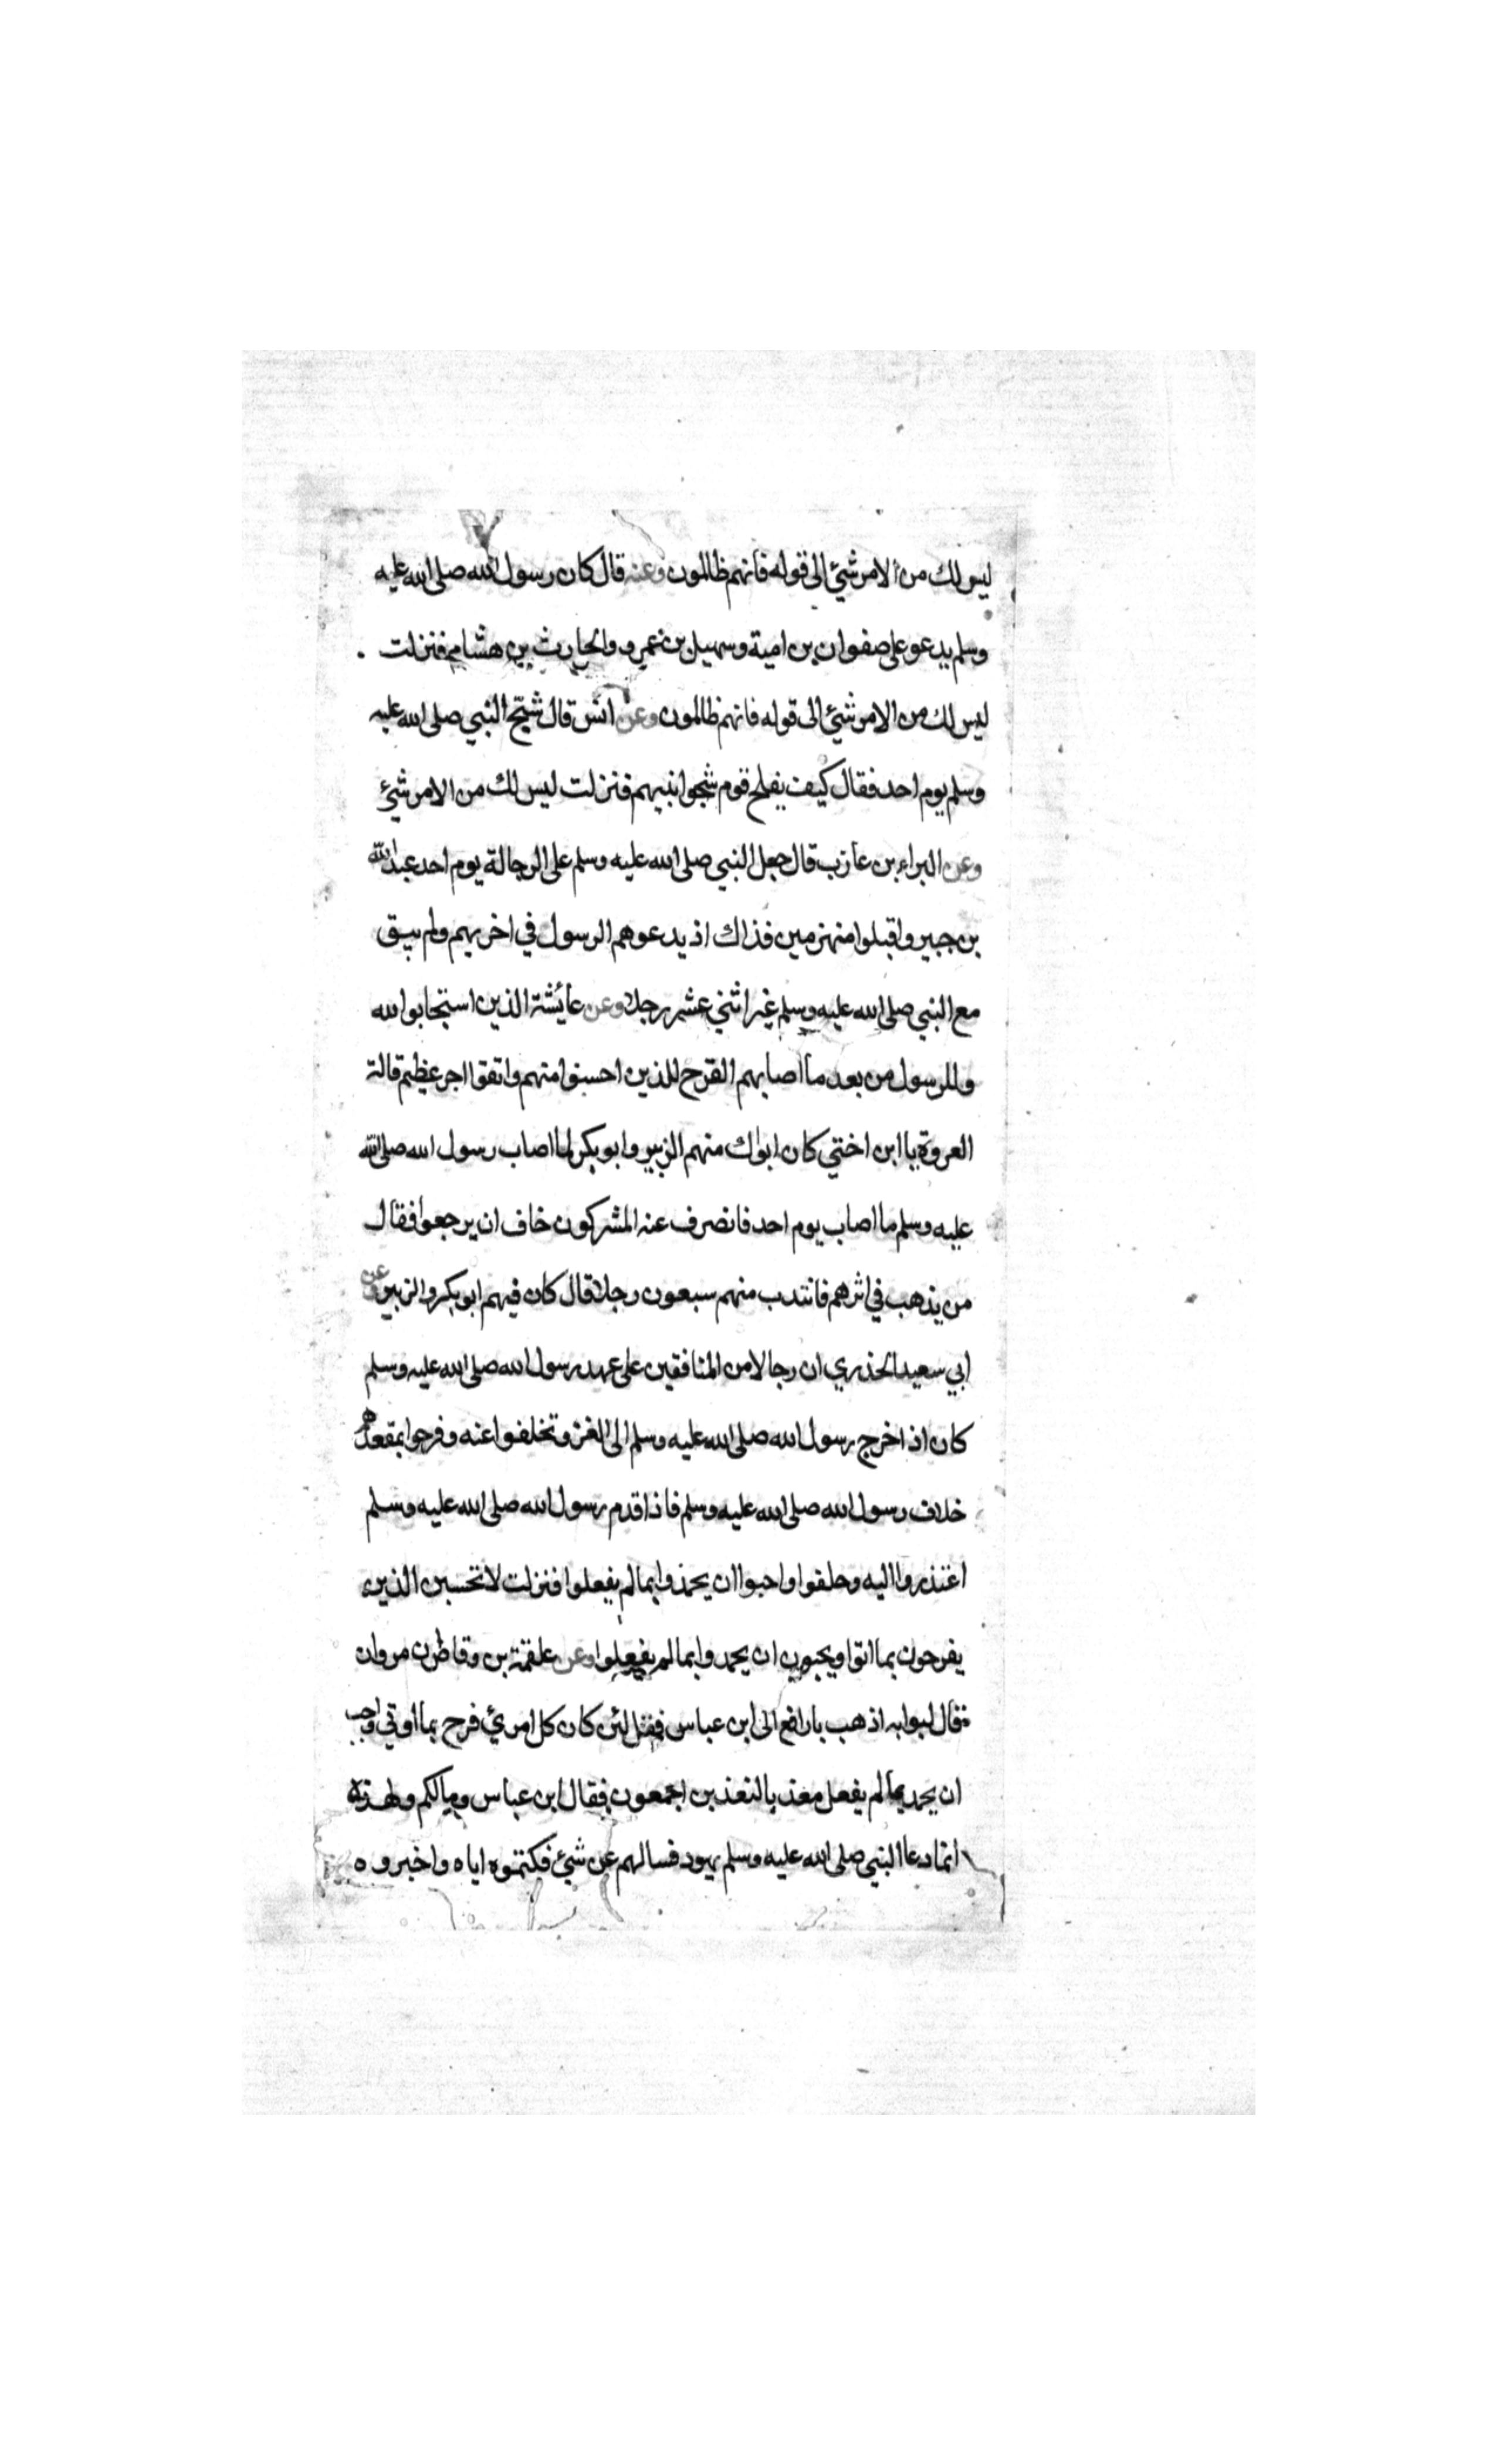 ليس لك من الامر شئ الى قوله فانهم ظالمون وعنه قال كان رسول الله صلى الله عليه
وسلم يدعو على صفوان بن امية وسهيل بن عمرو والحارث بن هشام فنزلت
ليس لك من الامر شئ الى قوله فانهم ظالمون وعن انس قال شج النبي صلى الله عليه
وسلم يوم احد فقال كيف يفلح قوم شجوا نبيهم فنزلت ليس لك من الامر شئ
وعن البراء بن عازب قال جعل النبي صلى الله عليه وسلم على الرجالة يوم احد عبد الله
بن جبير واقبلوا منهزمين فذاك اذ يدعوهم الرسول في اخريهم ولم يبق
مع النبي صلى الله عليه وسلم غير اثني عشر رجلا وعن عائشة الذين استجابوا لله
وللرسول من بعد ما اصابهم القرح للذين احسنوا منهم واتقوا اجر عظيم قالة
العروة يا ابن اختي كان ابواك منهم الزبير وابو بكر لما اصاب رسول الله صلى الله
عليه وسلم ما اصاب يوم احد فانصرف عنه المشركون خاف ان يرجعوا فقال
من يذهب في اثرهم فانتدب منهم سبعون رجلا قال كان فيهم ابو بكر والزبير وعن
ابي سعيد الخذري ان رجالا من المنافقين على عهد رسول الله صلى الله عليه وسلم
كان اذا خرج رسول الله صلى الله عليه وسلم الى الغزو تخلفوا عنه وفرحوا بمقعدهم
خلاف رسول الله صلى الله عليه وسلم فاذا قدم رسول الله صلى الله عليه وسلم
اعتذروا اليه وحلفوا واحبوا ان يحمذوا بما لم يفعلوا فنزلت لا تحسبن الذين
يفرحون بما اتوا ويحبون ان يحمدوا بما لم يفعلوا وعن علقمة بن وقاص ان مروان
قال لبوابه اذهب يا رافع الى ابن عباس فقل لئن كان كل امرئ فرح بما اوتي واحب
ان يحمد بما لم يفعل معذبا لنعذبن اجمعون فقال ابن عباس ومالكم ولهذه
انما دعا النبي صلى الله عليه وسلم يهود فسالهم عن شئ فكتموه اياه واخبروه